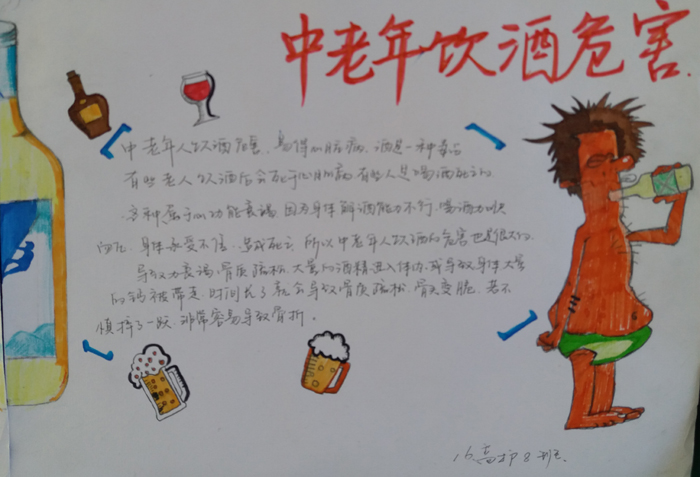 中老年饮酒危害.
中老年人饮酒危害、易得心脏病、酒是一种毒品
有些老人饮酒后会死于心脏病,有些人是喝酒死亡的.
各种属于心功能衰竭、因为身体解酒能力不行、喝酒
身体承受不住、造成死亡 所以中老年人饮酒的危害也是很大的.
导致 衰竭、骨质疏松、大量的酒精进入体内、或导致身体大量
的钙被带走、时间长了就会导致骨质疏松、骨头变脆、若不
慎摔了一跤、非常容易导致骨折。
16.高护8班.